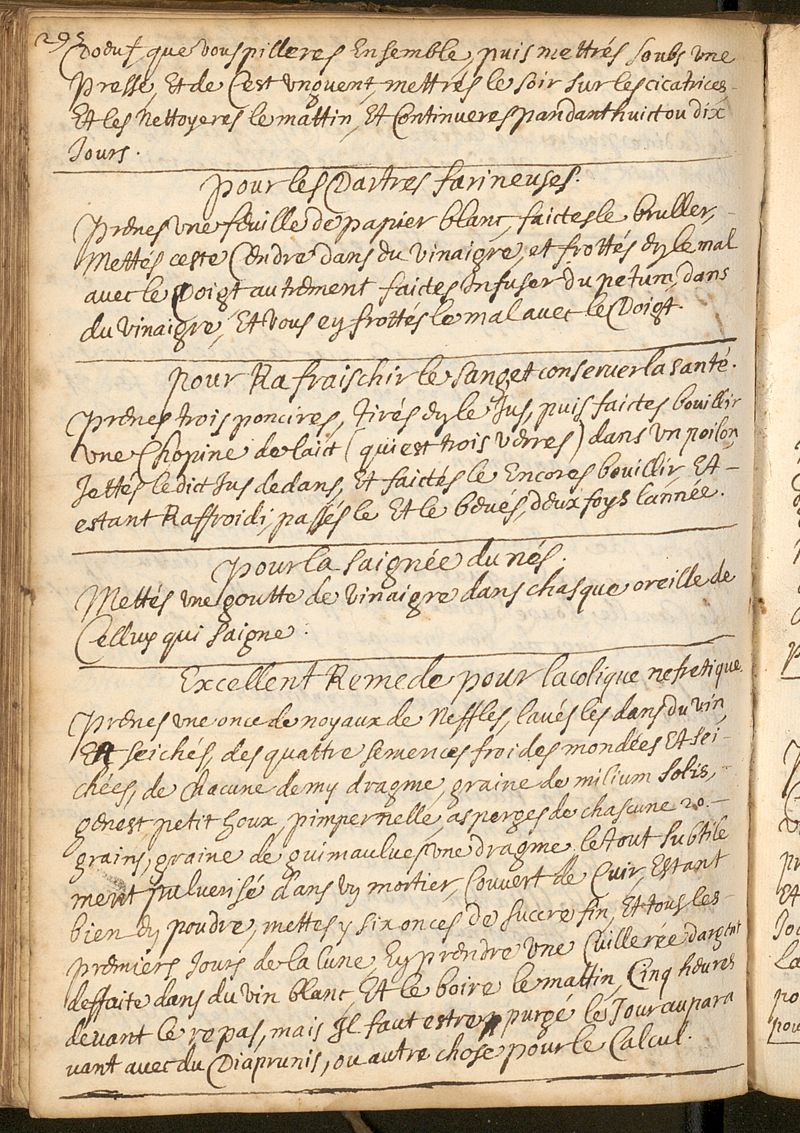 295
d'oeuf, que vous pilleres Ensemble, puis mettrés soubs une
presse, Et de C'est unguent, mettrés le soir sur les cicatrices
Et les nettoyeres le mattin, Et Continueres pandant huict ou dix
Jours.
pour les Dartres farineuses.
Prenes une feuille de papier blanc, faictes le bruller,
Mettés ceste Cendre dans du vinaigre, et frottés en le mal
avec le Doigt autrement faictes Infuser du petum, dans
du vinaigre, Et vous en frottés le mal avec le Doigt.
pour Rafraischir le sang et conserver la santé.
Prenes trois poncires, tirés en le Jus, puis faictes bouillir
une Chopine de laict (qui est trois verres) dans un poilon,
Jettés le dict Jus dedans, Et faictés le Encores bouillir, Et
estant Raffroidi, passés le Et le beués, deux foys l'année.
pour la saignée du nés.
Mettés une goutte de vinaigre dans chasque oreille de
Celluy qui saigne.
Excellent Remede pour la colique nefretique.
Prenes une once de noyaux de Neffles, lavés les dans du vin,
Et seichés, des quattre semences froides mondées Et sei-
chées, de chacune demy dragme, graine de milium solis,
genest petit houx pimpernelle, asperges de chascune 20.
grains, graine de guimaulves une dragme, le tout subtile
ment pulverisé dans un mortier, Couvert de Cuir, Estant
bien en poudre, mettes y six onces de succre fin, Et tous les
premiers Jours de la Lune, En prendre une Cuillerée d'argent
deffaite dans du vin blanc, Et le boire le mattin, Cinq heures
devant le repas, mais Il faut estre purgé les Jour aupara
vant avec du Diaprunis, ou autre chose pour le Calcul.